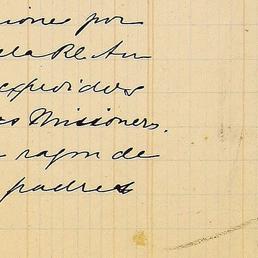 iones por
de la Rl Au
expedidos
os Missioners.
a razon de
padres